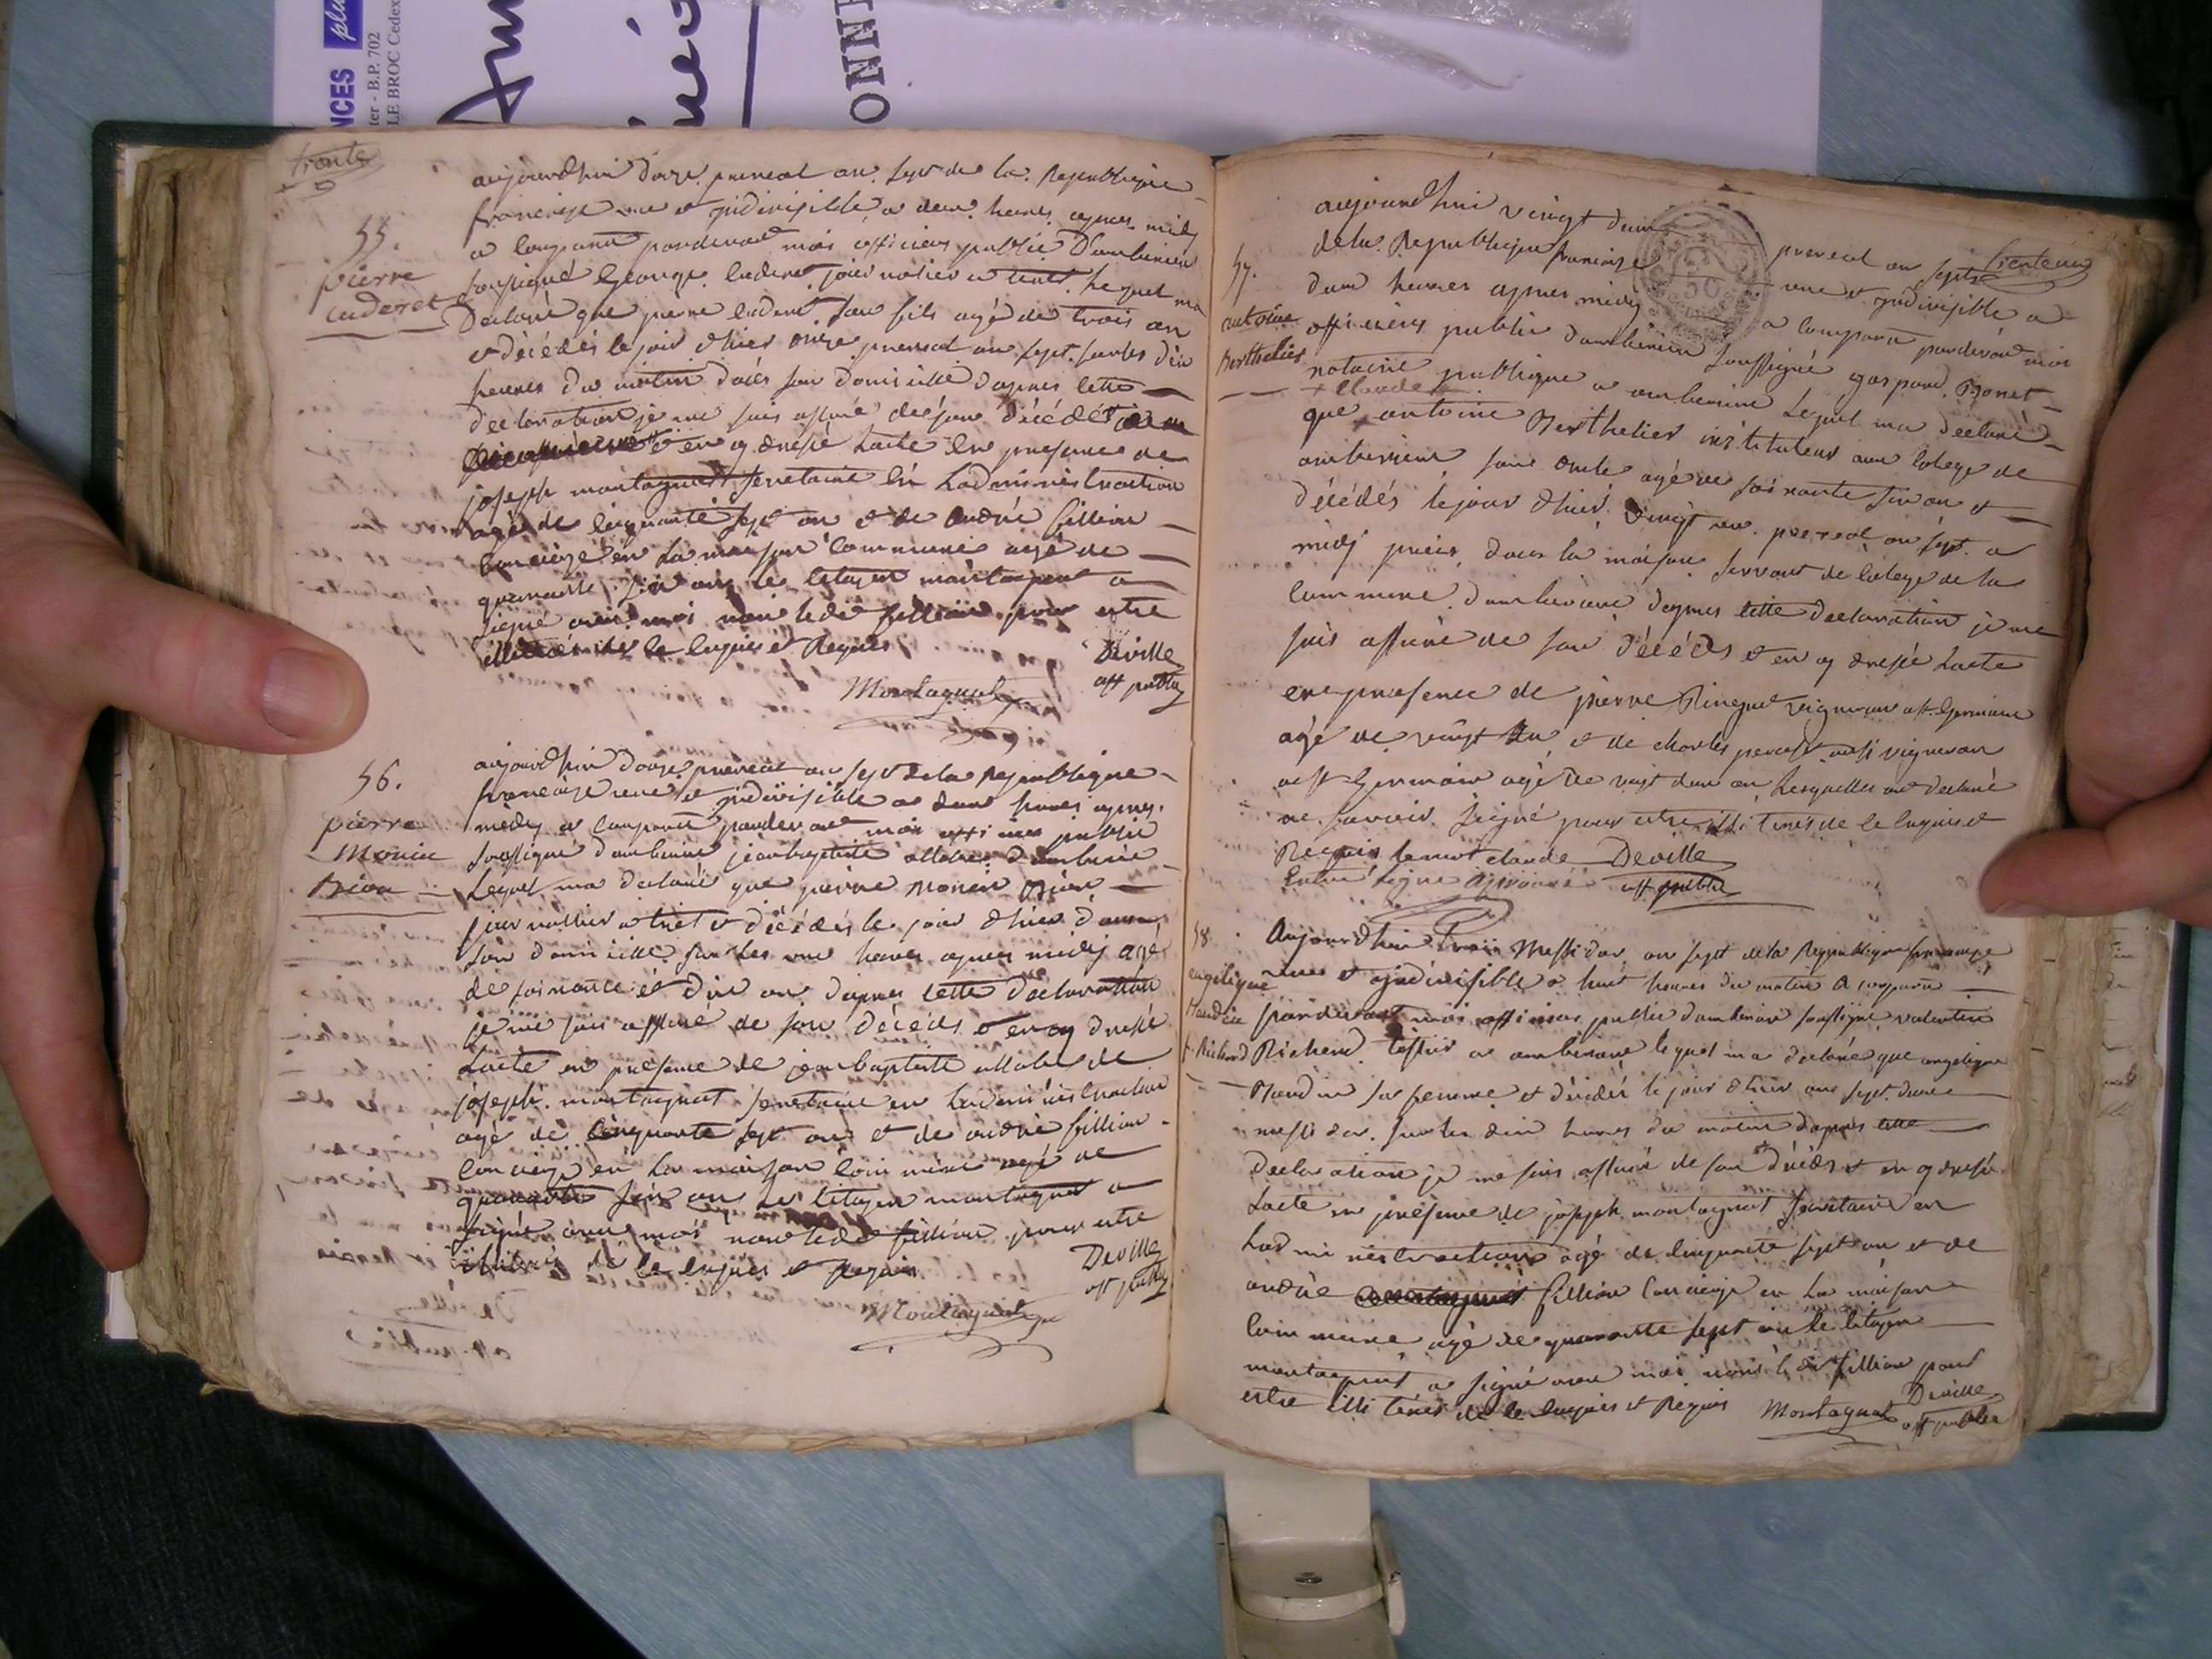 NCES plu
ter - B.P. 702
LE BROC Cedex
ONN
trente
aujourdhui douze prereal an sept de la Republique
françoise une et jndivisible a deux heures apres midy
a comparut pardevant moi officier public Dambérieu
soussigné George Cuderet journalier a tiret Lequel ma
Declaré que pierre Cuderet son fils agé de trois an
et décédés le jour d'hier onze prereal an sept sur les dix
heures du matin dans son domicille dapres cette
declaration je me suis assuré de son décédés
et en ay dressé Lacte en presence de
joseph montagnat secretaire en Ladministraction
agé de cinquante sept an et de André fillion
Concierge en La maison Commune agé de
quarante six ans Le citoyen montagnat a
signé avec moi non ledit fillion pour estre
illitérés de ce enquis et Requis
Deville
off public
Montagnat
55.
pierre
Cuderet
56.
pierre
Monin
Brion
aujourdhui douze prereal an sept de la Republique
francoise une et jndivisible a deux heures apres
midy a comparut pardevant moi officier public
soussigné dambérieu jean baptiste allabe dambérieu
Lequel ma declaré que pierre monin Brion
journallier a tiret et décédés le jour d'hier dans
son domicille sur les une heures apres midy agé
de soixante et dix an dapres cette declaration
je me suis assuré de son décéds et en ay dressé
Lacte en présence de jean baptiste allabe de
joseph montagnat secretaire en Ladministraction
agé de cinquante sept ans et de andré fillion
Concierge en La maison commune agé de
quarante six ans Le citoyen montagnat a
signé avec moi non ledit fillion pour estre
illitérés de ce enquis et Requis
Deville
off public
Montagnat
trente un
57.
antoine
Berthelier
aujourdhui vingt deux prereal an sept
de la Republique francoise une et jndivisible a
deux heures apres midy a comparut pardevant moi
officiers public dambérieu soussigné gaspard Bonet
notaire publique a ambérieu Lequel ma declaré
+ Claude
que antoine Berthelier instituteur au colege de
ambérieu son oncle agé de soixante six an et
décédés le jour d'hier vingt un prereal an sept a
midj précis dans la maison servant de colege de la
commune dambérieu dapres cette declaration je me
suis assuré de son décéds et en ay dressé Lacte
en presence de pierre Ringuet vigneron a st Germain
agé de vingt un et de charles percost aussi vigneron
a st Germain agé de vingt deux an Lesquelles ont declaré
ne savoir signé pour estre illitérés de ce enquis et
Requis le mot claude
entre ligne approuvé
Deville
off public
58.
angelique
Baudin
f. Richerd
Aujourdhui trois Messidor an sept de la Republique francoise
une et jndivisible a huit heures du matin a comparu
pardevant moi officier public dambérieu soussigné valentin
Richerd tissier a ambérieu lequel ma declaré que angelique
Baudin sa femme et décédés le jour d'hier an sept deux
messidor sur les dix heures du matin dapres cette
declaration je me suis assuré de son décéds et en ay dressé
Lacte en présence de joseph montagnat secretaire en
Ladministraction agé de cinquante sept an et de
andré fillion Concierge en La maison
commune agé de quarante sept an le citoyen
montagnat a signé avec moi non le dit fillion pour
estre illitérés de ce enquis et Requis
Montagnat
Deville
off public